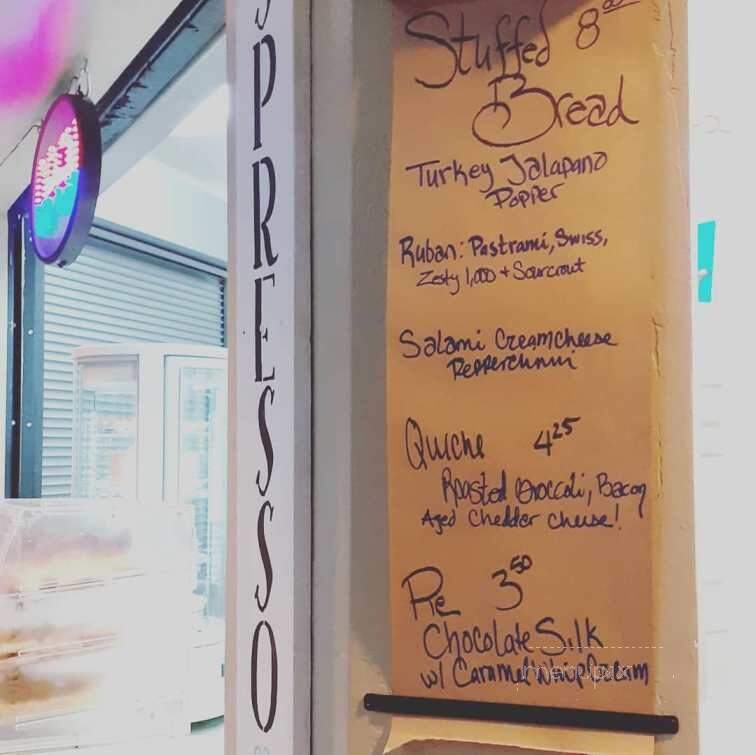 SPRESSO
Stuffed 8⁰⁰
Bread
Turkey Jalapano
Popper
Ruban: Pastrami, Swiss,
Zesty 1,000 + Sourcrout
Salami Creamcheese
Pepperchinni
Quiche 4²⁵
Roasted Broccoli, Bacon
Aged Cheddar cheese!
Pie 3⁵⁰
Chocolate Silk
w/ Caramel Whip Cream
menupix